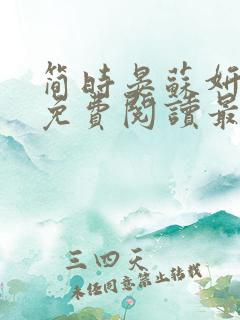 簡時晏蘇妍
免費閱讀最
三四天
未經同意禁止轉載